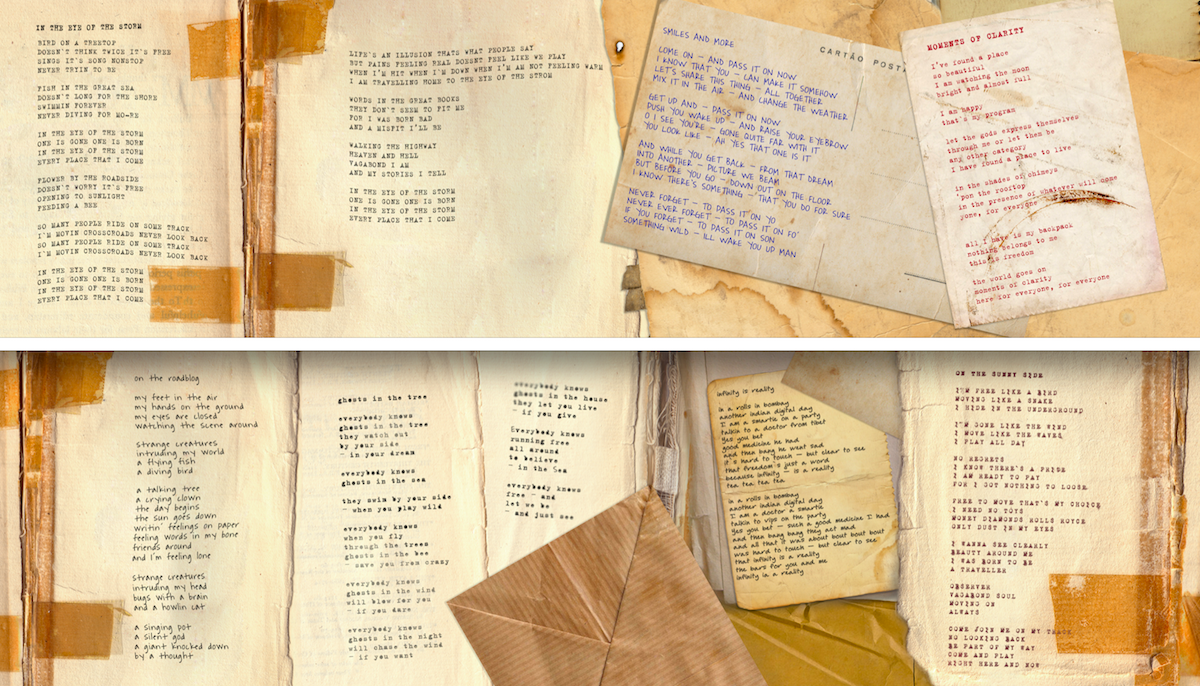 IN THE EYE OF THE STORM
BIRD ON A TREETOP
DOESN'T THINK TWICE IT'S FREE
SINGS IT'S SONG NONSTOP
NEVER TRYIN TO BE
FISH IN THE GREAT SEA
DOESN'T LONG FOR THE SHORE
SWIMMIN FOREVER
NEVER DIVING FOR MO-RE
IN THE EYE OF THE STORM
ONE IS GONE ONE IS BORN
IN THE EYE OF THE STORM
EVERY PLACE THAT I COME
FLOWER BY THE ROADSIDE
DOESN'T WORRY IT'S FREE
OPENING TO SUNLIGHT
FEEDING A BEE
SO MANY PEOPLE RIDE ON SOME TRACK
I'M MOVIN CROSSROADS NEVER LOOK BACK
SO MANY PEOPLE RIDE ON SOME TRACK
I'M MOVIN CROSSROADS NEVER LOOK BACK
IN THE EYE OF THE STORM
ONE IS GONE ONE IS BORN
IN THE EYE OF THE STORM
EVERY PLACE THAT I COME
LIFE'S AN ILLUSION THATS WHAT PEOPLE SAY
BUT PAINE FEELING REAL DOESNT FEEL LIKE WE PLAY
WHEN I'M HIT WHEN I'M DOWN WHEN I'M AM NOT FEELING WARM
I AM TRAVELLING HOME TO THE EYE OF THE STROM
WORDS IN THE GREAT BOOKS
THEY DON'T SEEM TO FIT ME
FOR I WAS BORN BAD
AND A MISFIT I'LL BE
WALKING THE HIGHWAY
HEAVEN AND HELL
VAGABOND I AM
AND MY STORIES I TELL
IN THE EYE OF THE STORM
ONE IS GONE ONE IS BORN
IN THE EYE OF THE STORM
EVERY PLACE THAT I COME
CARTÃO POSTA
SMILES AND MORE
COME ON - AND PASS IT ON NOW
I KNOW THAT YOU - CAN MAKE IT SOMEHOW
LET'S SHARE THIS THING - ALL TOGETHER
MIX IT IN THE AIR - AND CHANGE THE WEATHER
GET UP AND - PASS IT ON NOW
PUSH YOU WAKE UP - AND RAISE YOUR EYEBROW
O I SEE YOU'RE - GONE QUITE FAR WITH IT
YOU LOOK LIKE - AH YES THAT ONE IS IT
AND WHILE YOU GET BACK - FROM THAT DREAM
INTO ANOTHER - PICTURE WE BEAM
BUT BEFORE YOU GO - DOWN OUT ON THE FLOOR
I KNOW THERE'S SOMETHING - THAT YOU DO FOR SURE
NEVER FORGET - TO PASS IT ON YO
NEVER EVER FORGET - TO PASS IT ON FO'
IF YOU FORGET - TO PASS IT ON SON
SOMETHING WILD - ILL WAKE YOU UP MAN
MOMENTS OF CLARITY
I've found a place
so beautiful
I am watching the moon
bright and almost full
I am happy
that's my program
let the gods express themselves
through me or let then be
any other category
I have found a place to live
in the shades of chimeys
'pon the rooftop
in the presence of whatever will come
yone, for everyone
all i have is my backpack
nothing belongs to me
this is freedom
the world goes on
moments of clarity
here for everyone, for everyone
on the roadblog
my feet in the air
my hands on the ground
my eyes are closed
watching the scene around
strange creatures
intruding my world
a flying fish
a diving bird
a talking tree
a crying clown
the day begins
the sun goes down
writin' feelings on paper
feeling words in my bone
friends around
and I'm feeling lone
strange creatures
intruding my head
bugs with a brain
and a howlin cat
a singing pot
a silent god
a giant knocked down
by a thought
ghosts in the tree
everybody knows
ghosts in the tree
they watch out
by your side
- in your dream
everybody knows
ghosts in the sea
they swim by your side
- when you play wild
everybody knows
when you fly
through the trees
ghosts in the bee
- save you from crazy
everybody knows
ghosts in the wind
will blow for you
- if you dare
everybody knows
ghosts in the night
will chase the wind
- if you want
everybody knows
ghosts in the house
they let you live
- if you give
Everybody knows
running free
all around
to believe
- in the Sea
everybody knows
free - and
let we be
- and just see
infinity is reality
in a rolls in bombay
another indian digital day
I am a smartie on a party
talkin to a doctor from tibet
yes you bet
good medicine he had
and then bang he went sad
it's hard to touch - but clear to see
that freedom's just a word
because infinity - is a reality
tea tea tea tea
in a rolls in bombay
another indian digital day
I am a doctor a smartie
talkin to vips on the party
yes you bet - such a good medicine I had
and then bang bang they get mad
and all that it was about bout bout bout
was hard to touch - but clear to see
that infinity is a reality
the bars for you and me
infinity in a reality
ON THE SUNNY SIDE
I'M FREE LIKE A BIRD
MOVING LIKE A SNAKE
I HIDE IN THE UNDERGROUND
I'M GONE LIKE THE WIND
I MOVE LIKE THE WAVES
I PLAY ALL DAY
NO REGRETS
I KNOW THERE'S A PRIDE
I AM READY TO PAY
FOR I GOT NOTHING TO LOOSE
FREE TO MOVE THAT'S MY CHOICE
I NEED NO TOYS
MONEY DIAMONDS ROLLS ROYCE
ONLY DUST IN MY EYES
I WANNA SEE CLEARLY
BEAUTY AROUND ME
I WAS BORN TO BE
A TRAVELLER
OBSERVER
VAGABOND SOUL
MOVING ON
ALWAYS
COME JOIN ME ON MY TRACK
NO LOOKING BACK
BE PART OF MY WAY
COME AND PLAY
RIGHT HERE AND NOW